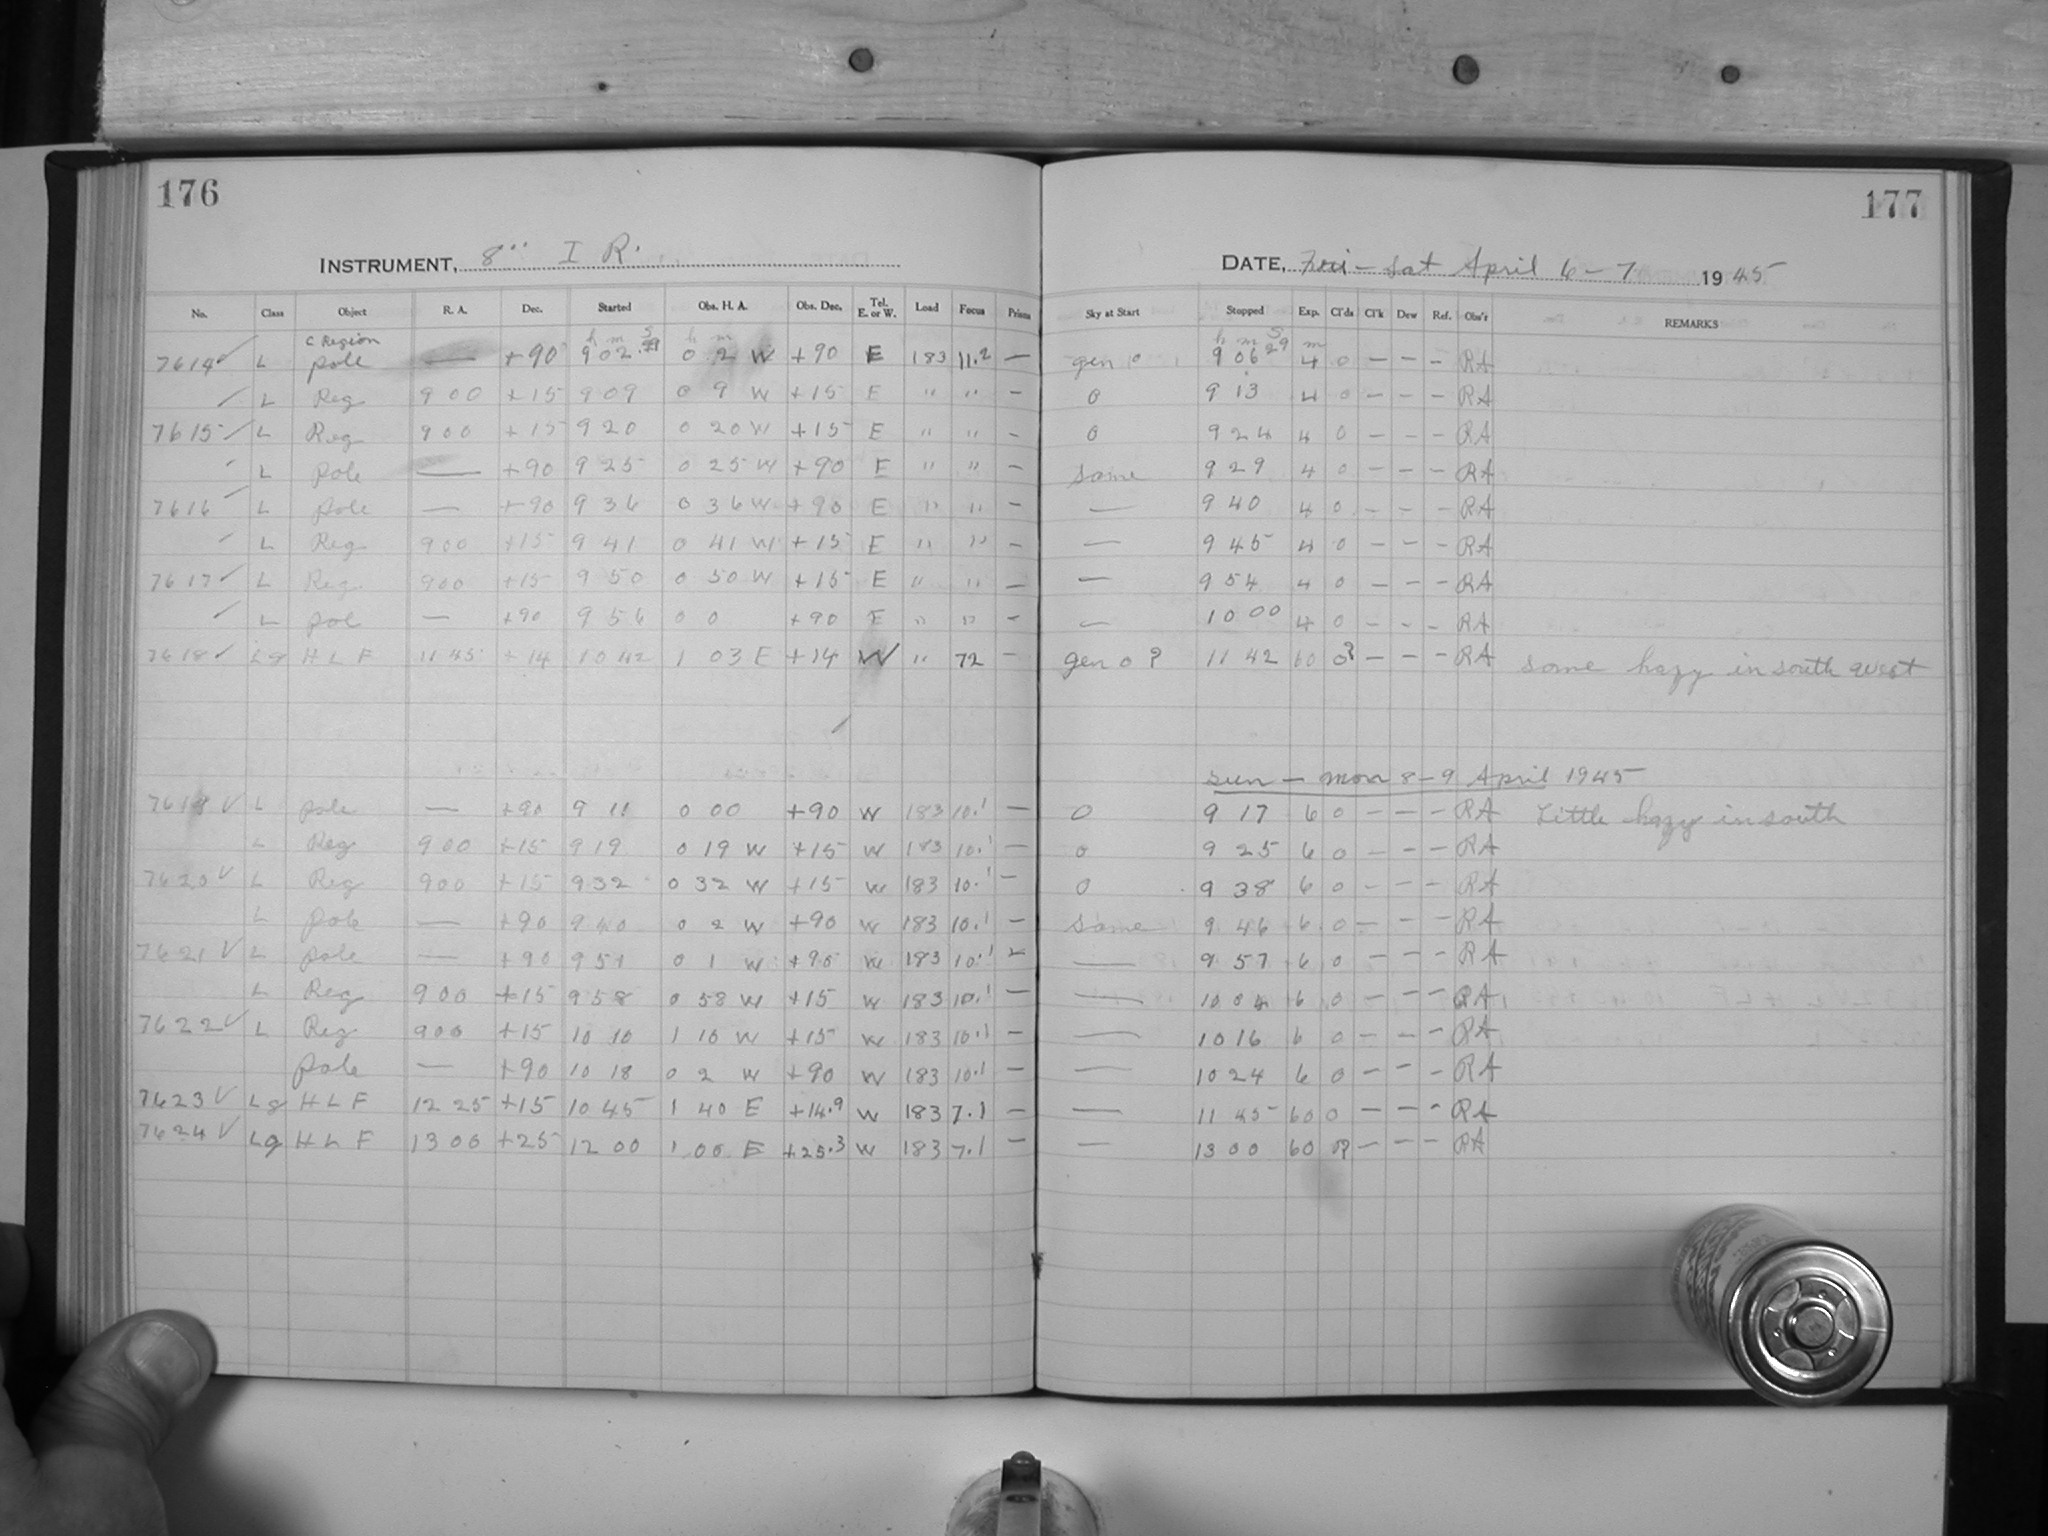 176
177
INSTRUMENT, 8" I R.
DATE, Fri - Sat April 6 - 7 1945
No. Class Object R. A. Dec. Started Obs. H. A. Obs. Dec. Tel. E. or W. Load Focus Prisms Sky at Start Stopped Exp. Cl'ds Cl'k Dew Ref. Obs'r REMARKS
C Region
h m s h m h m s m
7614 ✓ L pole — +90 9 02 29 0 2 W +90 E 183 11.2 — gen 0 9 06 29 4 0 — — — RA
✓ L Reg 9 00 +15 9 09 0 9 W +15 E " " — 0 9 13 4 0 — — — RA
7615 ✓ L Reg 9 00 +15 9 20 0 20 W +15 E " " — 0 9 24 4 0 — — — RA
✓ L pole — +90 9 25 0 25 W +90 E " " — same 9 29 4 0 — — — RA
7616 ✓ L pole — +90 9 36 0 36 W +90 E " " — — 9 40 4 0 — — — RA
✓ L Reg 9 00 +15 9 41 0 41 W +15 E " " — — 9 45 4 0 — — — RA
7617 ✓ L Reg 9 00 +15 9 50 0 50 W +15 E " " — — 9 54 4 0 — — — RA
✓ L pole — +90 9 56 0 0 +90 E " " — — 10 00 4 0 — — — RA
7618 ✓ Lg H L F 11 45 +14 10 42 1 03 E +14 W " 72 — gen 0 ? 11 42 60 0? — — — RA some hazy in south west
Sun - Mon 8-9 April 1945
7619 ✓ L pole — +90 9 11 0 00 +90 W 183 10.1 — 0 9 17 6 0 — — — RA Little hazy in south
L Reg 9 00 +15 9 19 0 19 W +15 W 183 10.1 — 0 9 25 6 0 — — — RA
7620 ✓ L Reg 9 00 +15 9 32 0 32 W +15 W 183 10.1 — 0 9 38 6 0 — — — RA
L pole — +90 9 40 0 2 W +90 W 183 10.1 — same 9 46 6 0 — — — RA
7621 ✓ L pole — +90 9 51 0 1 W +90 W 183 10.1 — — 9 57 6 0 — — — RA
L Reg 9 00 +15 9 58 0 58 W +15 W 183 10.1 — — 10 04 6 0 — — — RA
7622 ✓ L Reg 9 00 +15 10 10 1 10 W +15 W 183 10.1 — — 10 16 6 0 — — — RA
pole — +90 10 18 0 2 W +90 W 183 10.1 — — 10 24 6 0 — — — RA
7623 ✓ Lg H L F 12 25 +15 10 45 1 40 E +14.9 W 183 7.1 — — 11 45 60 0 — — — RA
7624 ✓ Lg H L F 13 00 +25 12 00 1 00 E +25.3 W 183 7.1 — — 13 00 60 0? — — — RA